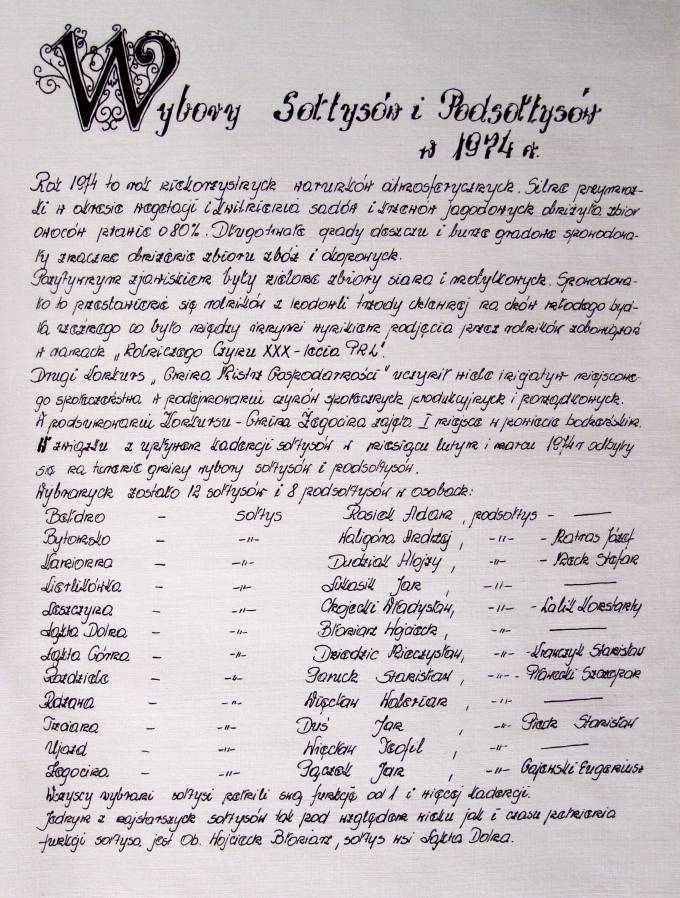 Wybory Sołtysów i Podsołtysów
w 1974 r.
Rok 1974 to rok niekorzystnych warunków atmosferycznych. Silne przymroz-
ki w okresie wegetacji i kwitnienia sadów i krzewów jagodowych obniżyła zbior
owoców prawie o 80%. Długotrwałe opady deszczu i burze gradowe spowodowa-
ły znaczne obniżenie zbioru zbóż i okopowych.
Pozytywnym zjawiskiem były zielone zbiory siana i motylkowych. Spowodowa-
ło to przestawienie się rolników z hodowli trzody chlewnej na chów młodego byd-
ła rzeźnego co było między innymi wynikiem podjęcia przez rolników zobowiązań
w ramach „Rolniczego Czynu XXX-lecia PRL”.
Drugi konkurs „Gmina Mistrz Gospodarności” uczynił wiele inicjatyw miejscowe-
go społeczeństwa w podejmowaniu czynów społecznych produkcyjnych i porządkowych.
W podsumowaniu konkursu - Gmina Żegocina zajęła I miejsce w powiecie bocheńskim.
W związku z upływem kadencji sołtysów w miesiącu lutym i marcu 1974 r odbyły
się na terenie gminy wybory sołtysów i podsołtysów.
Wybranych zostało 12 sołtysów i 8 podsołtysów w osobach:
Bełdno - sołtys Rosiek Adam, podsołtys - —
Bytomsko - -„- Waligóra Andrzej, -„- - Patras Józef
Kamionna - -„- Dudziak Alojzy, -„- - Pach Stefan
Kierlikówka - -„- Łukasik Jan, -„- —
Leszczyna - -„- Chojecki Władysław, -„- - Lalik Konstanty
Łąkta Dolna - -„- Błoniarz Wojciech, -„- —
Łąkta Górna - -„- Dziedzic Mieczysław, -„- - Krawczyk Stanisław
Rozdziele - -„- Januch Stanisław, -„- - Pławecki Szczepan
Rdzawa - -„- Więcław Walerian, -„- —
Trzciana - -„- Duś Jan, -„- Piech Stanisław
Ujazd - -„- Więcław Teofil, -„- —
Żegocina - -„- Pączek Jan, -„- Gajewski Eugeniusz
Wszyscy wybrani sołtysi pełnili swą funkcję od 1 i więcej kadencji.
Jednym z najstarszych sołtysów tak pod względem wieku jak i czasu pełnienia
funkcji sołtysa jest Ob. Wojciech Błoniarz, sołtys wsi Łąkta Dolna.